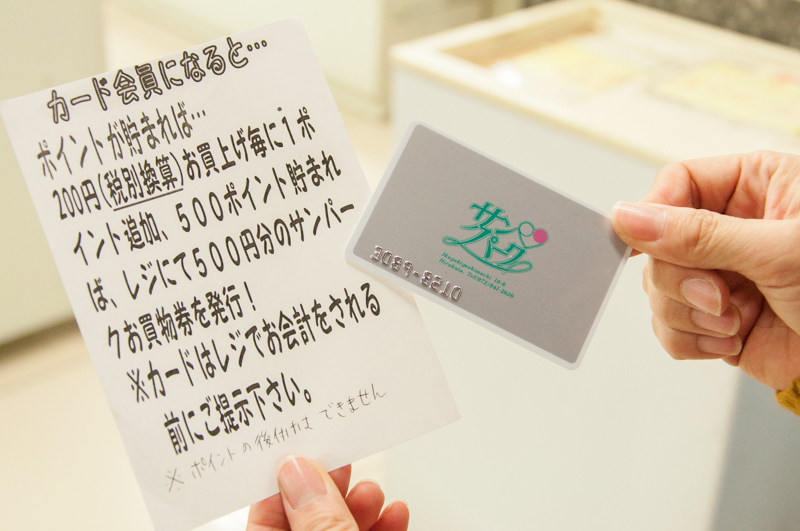 カード会員になると…
ポイントが貯まれば…
200円(税別換算)お買上げ毎に1ポ
イント追加、500ポイント貯まれ
ば、レジにて500円分のサンパー
クお買物券を発行！
※カードはレジでお会計をされる
前にご提示下さい。
※ ポイントの後付けは できません
サンパーク